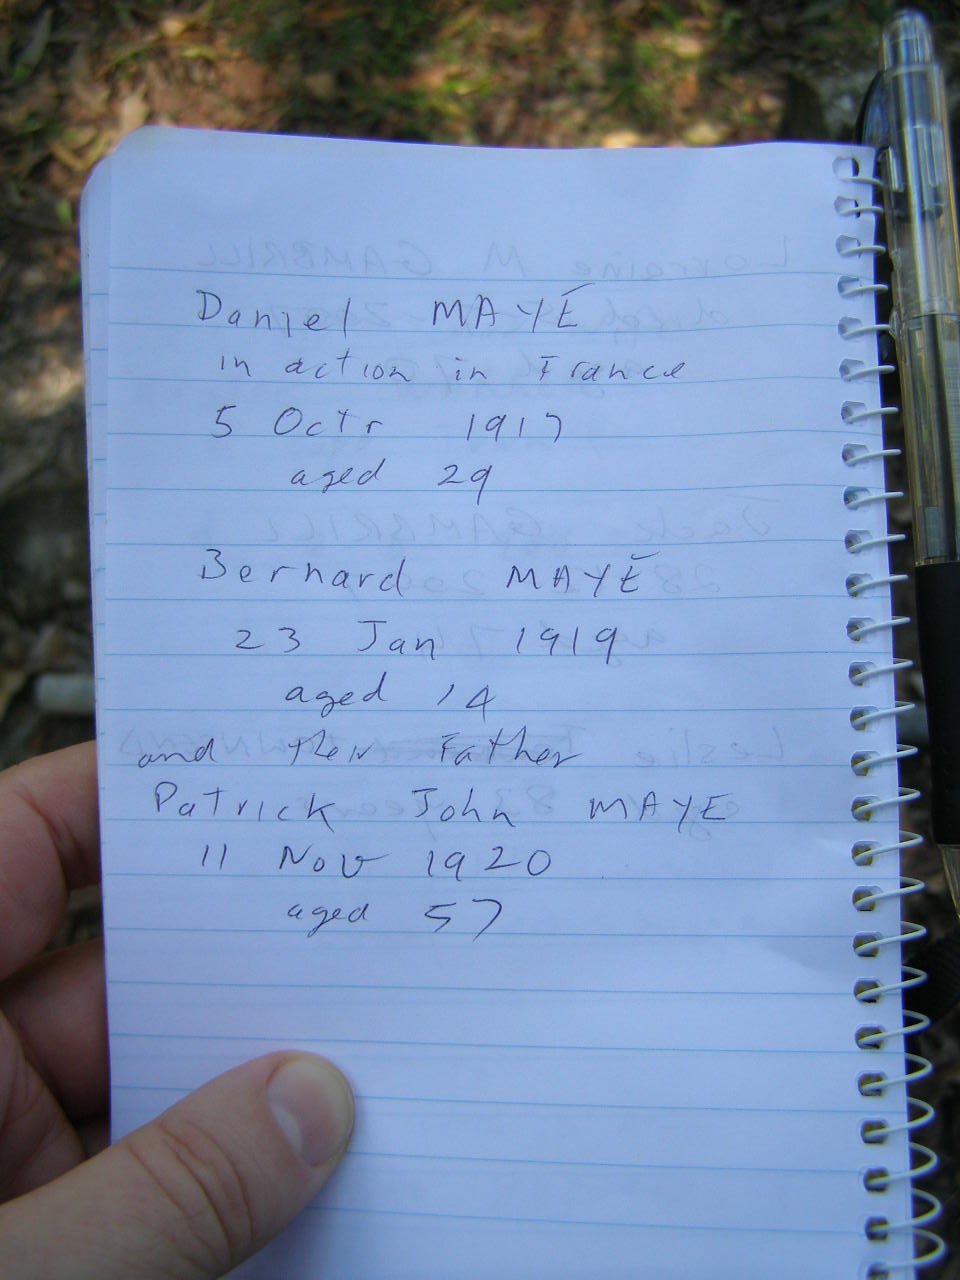 Daniel MAYE
in action in France
5 Octr 1917
aged 29
Bernard MAYE
23 Jan 1919
aged 14
and their Father
Patrick John MAYE
11 Nov 1920
aged 57